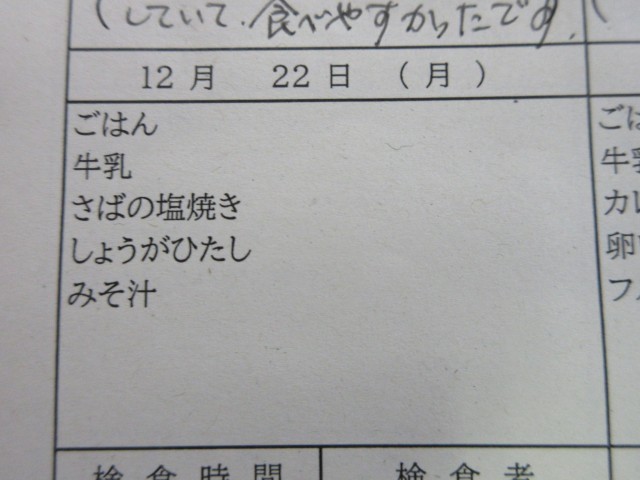 (していて、食べやすかったです。
12月 22日 (月)
ごはん
牛乳
さばの塩焼き
しょうがひたし
みそ汁
カレ
卵
フル
検食時間 検食者